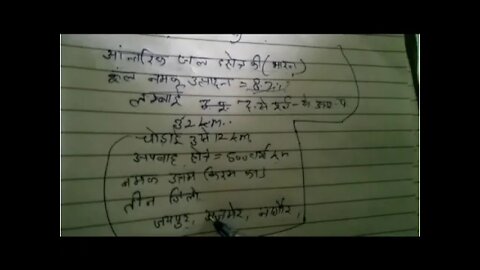 आंतरिक जल स्त्रोत की (भारत)
कुल नमक उत्पादन = 8.7%
लम्बाई द. पू. से
32 km.
चोड़ाई 3 से 12 km
अपवाह क्षेत्र = 500 वर्ग km
नमक उत्तम किस्म का।
तीन जिले
जयपुर, अजमेर, नागौर,